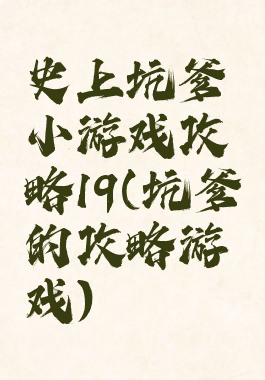 史上坑爹
小游戏攻
略19(坑爹
的攻略游
戏)